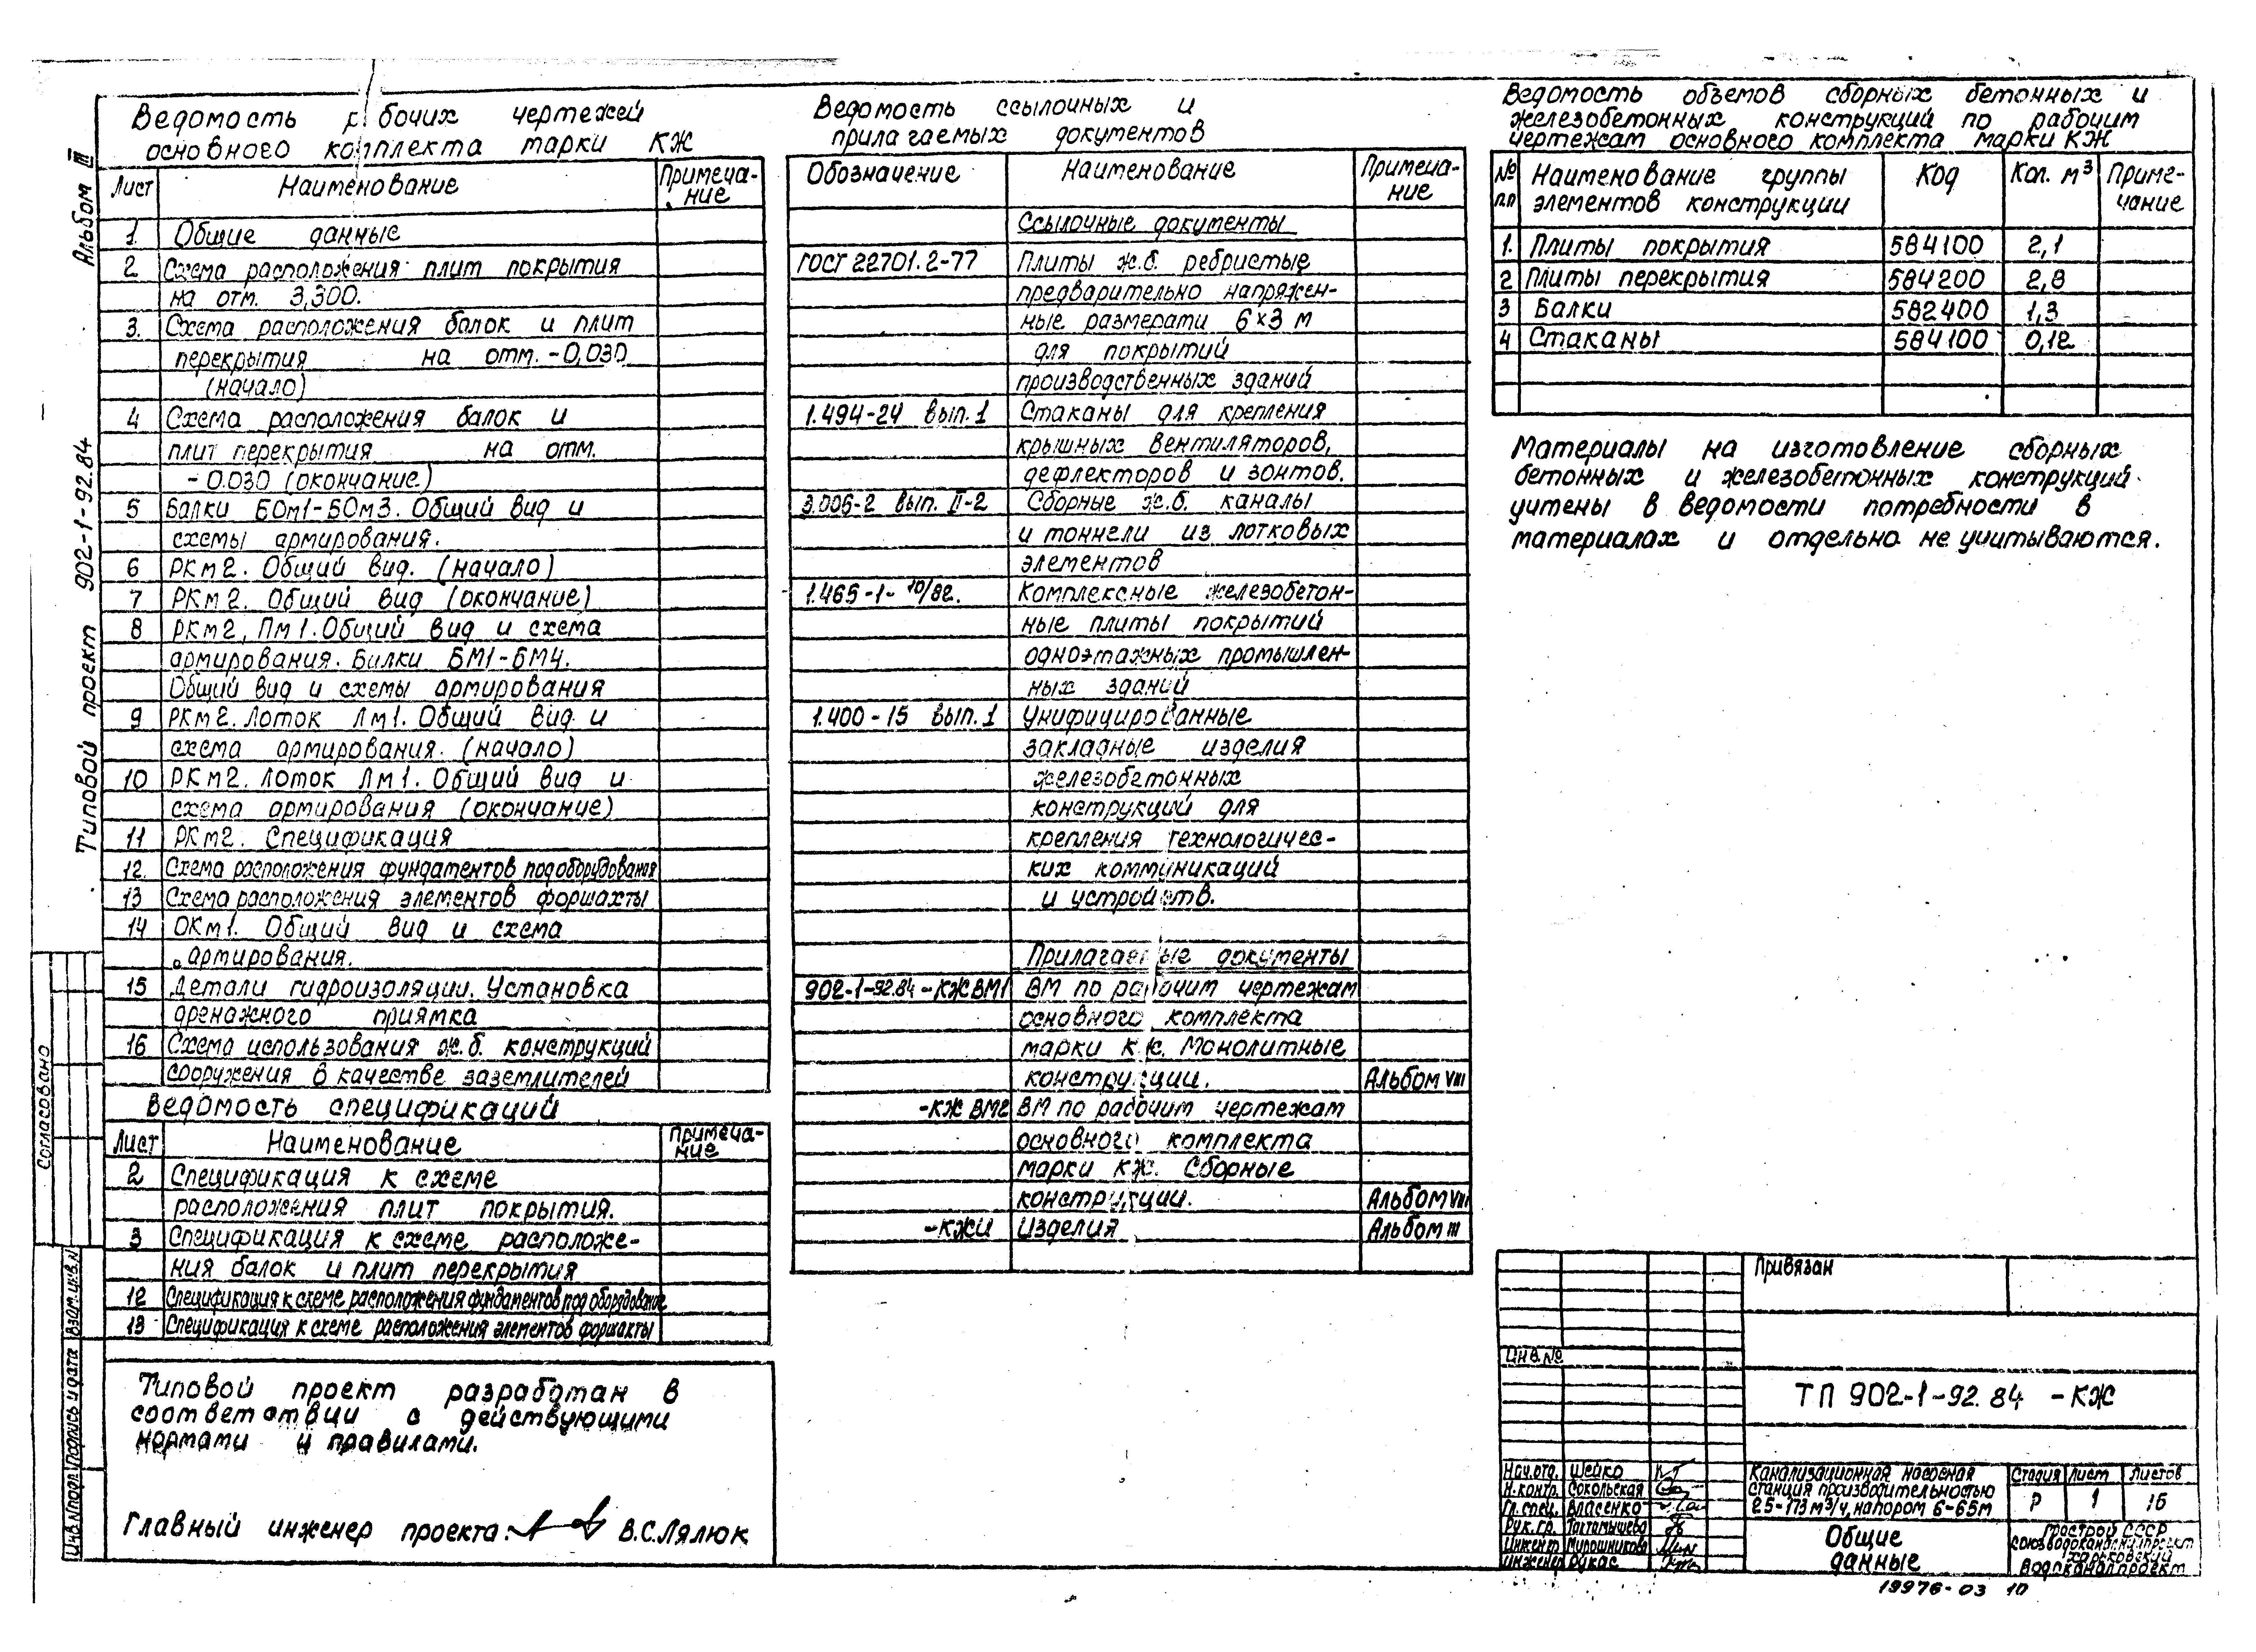 Альбом III
Типовой проект 902-1-92.84
Согласовано
Инв.N подл. Подпись и дата Взам.инв.N
Ведомость рабочих чертежей
основного комплекта марки КЖ
Лист Наименование Примеча-
ние
1. Общие данные
2 Схема расположения плит покрытия
на отм. 3,300.
3. Схема расположения балок и плит
перекрытия на отм. -0,030
(начало)
4 Схема расположения балок и
плит перекрытия на отм.
-0.030 (окончание)
5 Балки БОм1-БОм3. Общий вид и
схемы армирования.
6 РКм2. Общий вид. (начало)
7 РКм2. Общий вид (окончание)
8 РКм2, Пм1. Общий вид и схема
армирования. Балки БМ1-БМ4.
Общий вид и схемы армирования
9 РКм2. Лоток Лм1. Общий вид и
схема армирования. (начало)
10 РКм2. Лоток Лм1. Общий вид и
схема армирования (окончание)
11 РКм2. Спецификация
12. Схема расположения фундаментов под оборудование
13 Схема расположения элементов форшахты
14 ОКм1. Общий вид и схема
армирования.
15 Детали гидроизоляции. Установка
дренажного приямка
16 Схема использования ж.б. конструкций
сооружения в качестве заземлителей
Ведомость спецификаций
Лист Наименование Примеча-
ние
2 Спецификация к схеме
расположения плит покрытия.
3 Спецификация к схеме расположе-
ния балок и плит перекрытия
12 Спецификация к схеме расположения фундаментов под оборудование
13 Спецификация к схеме расположения элементов форшахты
Типовой проект разработан в
соответствии с действующими
нормами и правилами.
Главный инженер проекта: В.С.Лялюк
Ведомость ссылочных и
прилагаемых документов
Обозначение Наименование Примеча-
ние
Ссылочные документы
ГОСТ 22701.2-77 Плиты ж.б. ребристые
предварительно напряжен-
ные размерами 6×3 м
для покрытий
производственных зданий
1.494-24 вып.1 Стаканы для крепления
крышных вентиляторов,
дефлекторов и зонтов.
3.006-2 вып. II-2 Сборные ж.б. каналы
и тоннели из лотковых
элементов
1.465-1-10/82. Комплексные железобетон-
ные плиты покрытий
одноэтажных промышлен-
ных зданий
1.400-15 вып.1 Унифицированные
закладные изделия
железобетонных
конструкций для
крепления технологичес-
ких коммуникаций
и устройств.
Прилагаемые документы
902-1-92.84-КЖ ВМ1 ВМ по рабочим чертежам
основного комплекта
марки КЖ. Монолитные
конструкции. Альбом VIII
-КЖ ВМ2 ВМ по рабочим чертежам
основного комплекта
марки КЖ. Сборные
конструкции. Альбом VIII
-КЖИ Изделия Альбом III
Ведомость объемов сборных бетонных и
железобетонных конструкций по рабочим
чертежам основного комплекта марки КЖ
№ п.п Наименование группы элементов конструкции Код Кол. м³ Приме-
чание
1. Плиты покрытия 584100 2,1
2 Плиты перекрытия 584200 2,8
3 Балки 582400 1,3
4 Стаканы 584100 0,12
Материалы на изготовление сборных
бетонных и железобетонных конструкций
учтены в ведомости потребности в
материалах и отдельно не учитываются.
Привязан
Инв.№
ТП 902-1-92.84 -КЖ
Нач.отд. Шейко
Н.контр. Сокольская
Гл.спец. Власенко
Рук.гр. Тахтамышева
Инженер Мирошникова
Инженер Рукас
Канализационная насосная
станция производительностью
25-173 м³/ч, напором 6-65м
Стадия Лист Листов
Р 1 16
Общие
данные
Госстрой СССР
Союзводоканалниипроект
Харьковский
Водоканалпроект
19976-03 10